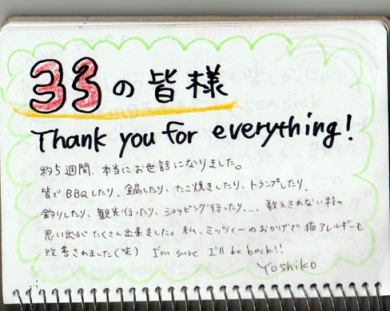 33の皆様
Thank you for everything!
約5週間、本当にお世話になりました。
皆でBBQしたり、鍋したり、たこ焼きしたり、トランプしたり、
釣りしたり、観光行ったり、ショッピング行ったり...、数えきれない程の
思い出がたくさん出来ました。私、ミッツィーのおかげで猫アレルギーも
改善されました(笑) I'm sure I'll be back!!
Yoshiko